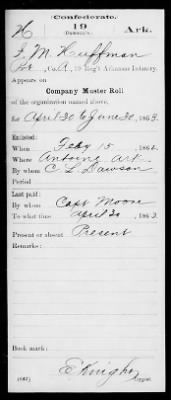 Confederate.
H 19 Ark.
(Dawson's)
J. M. Hauffman
Pvt, Co. A, 19 Reg't Arkansas Infantry.
Appears on
Company Muster Roll
of the organization named above,
for April 30 to June 30, 1863.
Enlisted:
When Feby 15, 1862.
Where Antoine Ark.
By whom C. L. Dawson
Period
Last paid:
By whom Capt Moore
To what time April 30, 1863.
Present or absent Present
Remarks:
Book mark:
(642) Copyist.